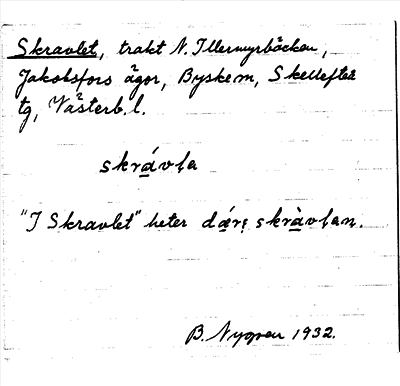 Skravlet, trakt N. Illermyrbäcken,
Jakobsfors ägor, Byske sn, Skellefteå
tg, Västerb. l.
skrávḷa
"I Skravlet" heter dǽrị skràvḷaṇ.
B. Nygren 1932.